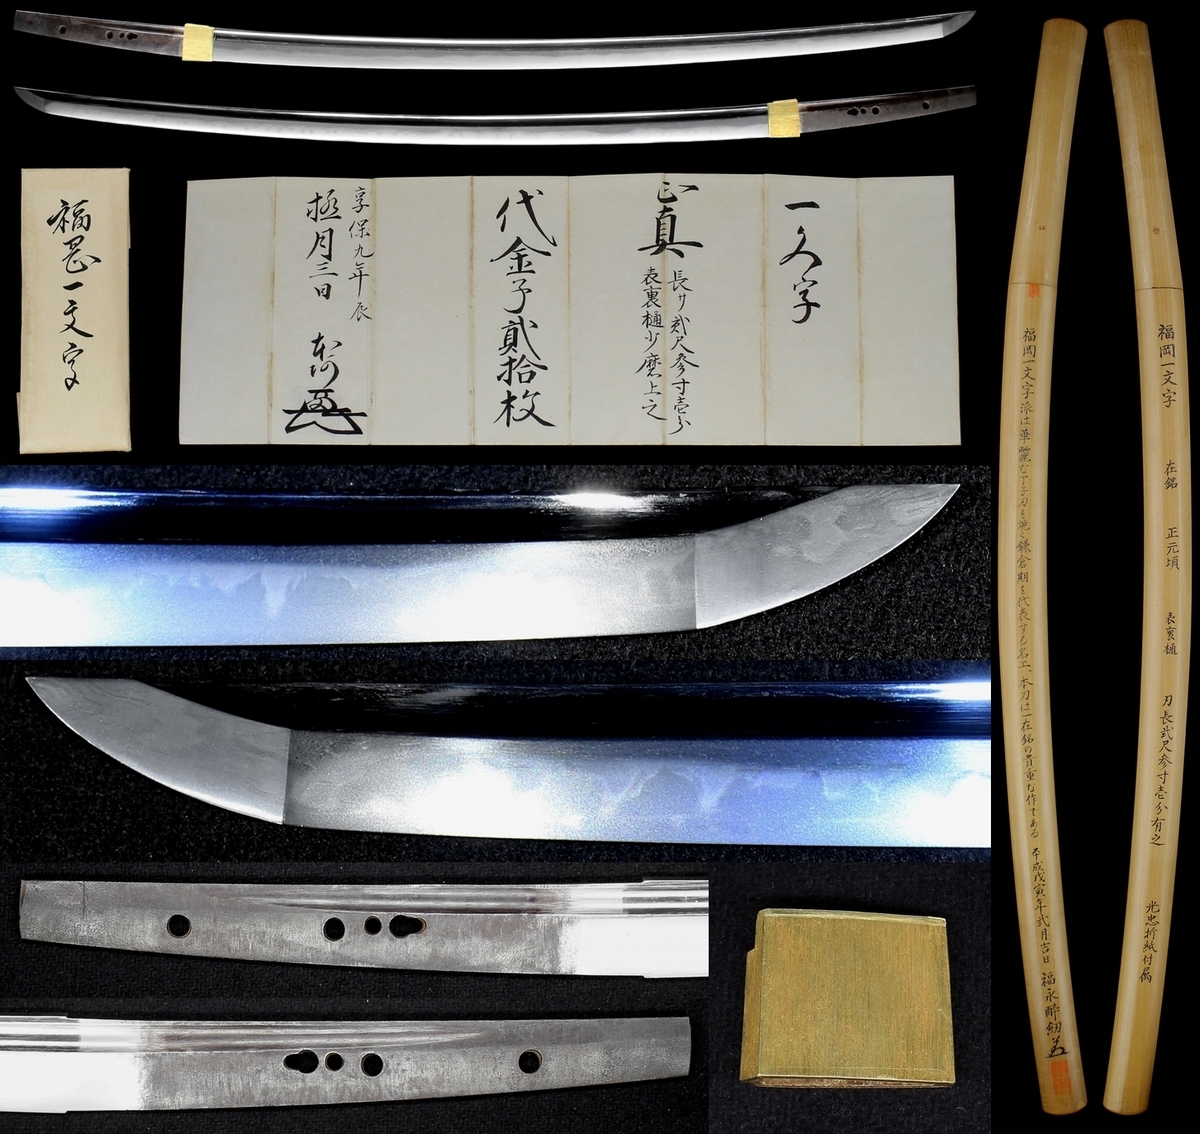 福岡一文字
一文字
正真
長サ貳尺参寸壱分
表裏樋少磨上之
代金子貳拾枚
享保九年辰
極月三日
本阿
福岡一文字
在銘
正元頃
表裏樋
刃長弐尺参寸壱分有之
光忠折紙付属
福岡一文字派は華麗な丁子刃を焼く鎌倉期を代表する名工、本刀は一在銘の貴重な作である
平成戊寅年弐月吉日
福永酔剣